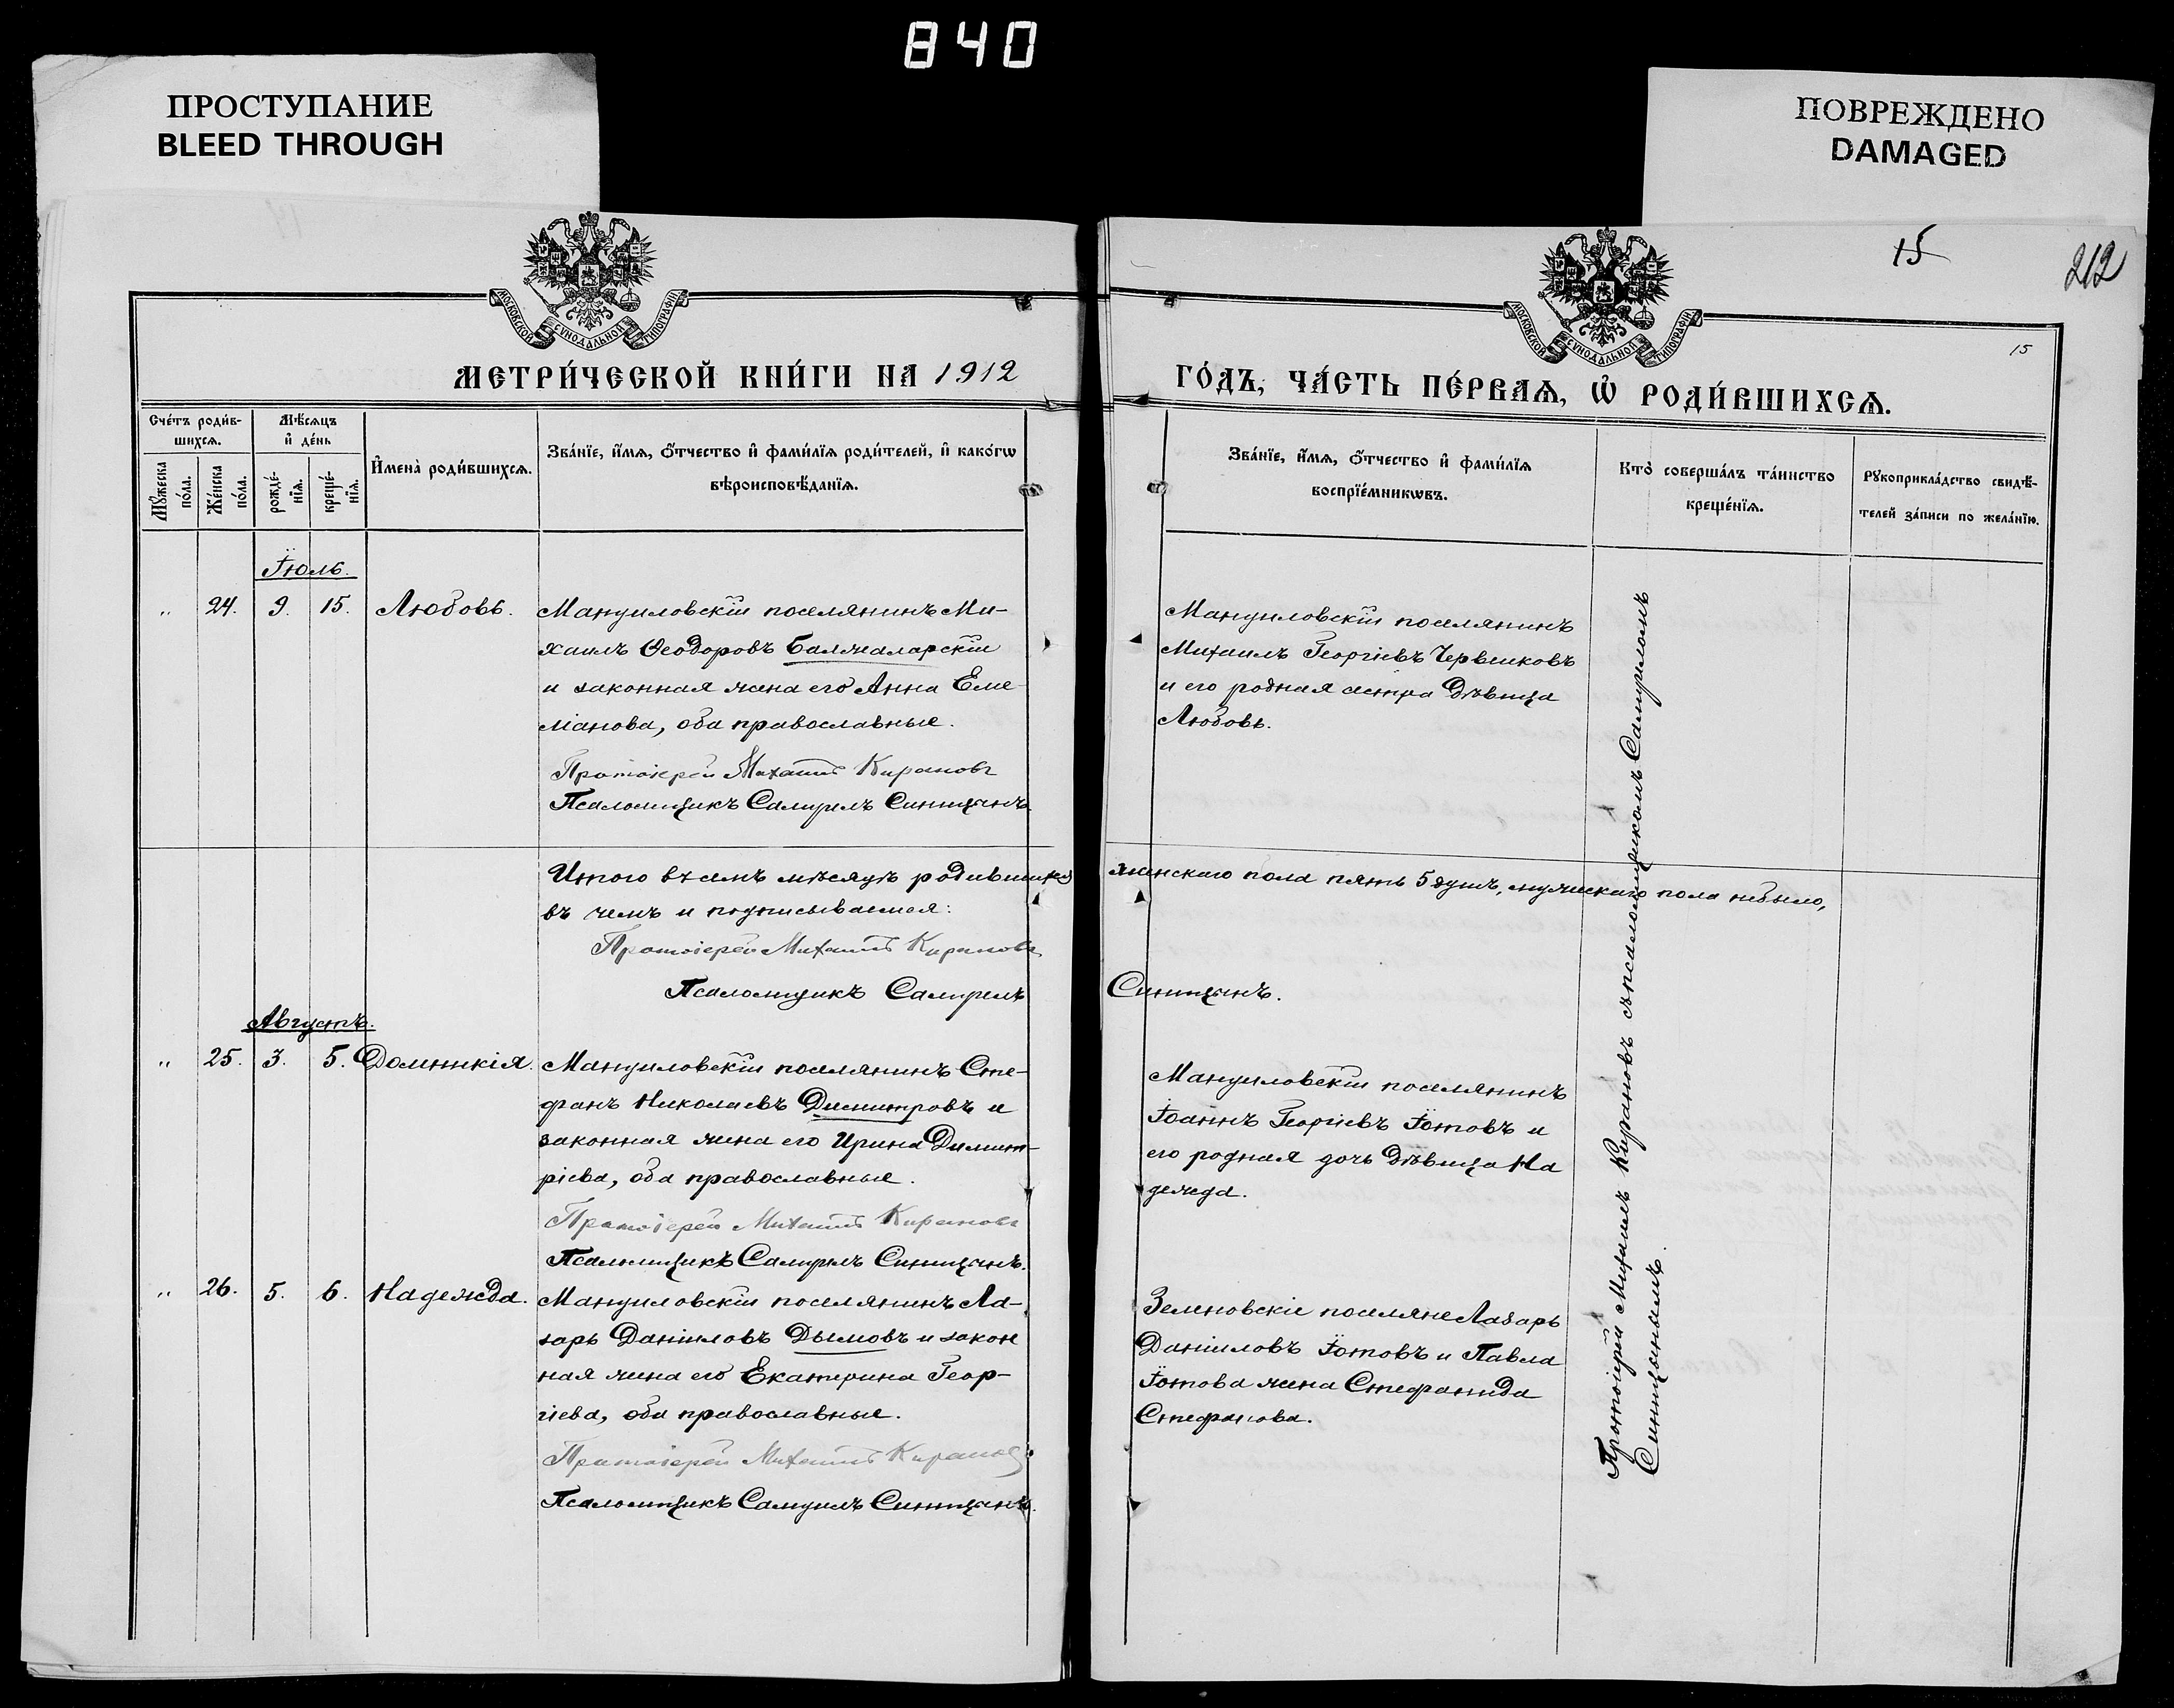 840
ПРОСТУПАНИЕ
BLEED THROUGH
ПОВРЕЖДЕНО
DAMAGED
15
212
МОСКОВСКОЙ СѴНОДАЛЬНОЙ ТИПОГРАФІИ
МОСКОВСКОЙ СѴНОДАЛЬНОЙ ТИПОГРАФІИ
15
МЕТРИ́ЧЕСКОЙ КНИ́ГИ НА 1912
ГО́ДЪ, ЧА́СТЬ ПЕ́РВАѦ, Ѡ҆ РОДИ́ВШИХСѦ.
Сче́тъ роди́в-
шихсѧ.
Мѣ́сѧцъ
и҆ де́нь
Мꙋ́жеска
по́ла.
Же́нска
по́ла.
рожде́-
нїѧ.
креще́-
нїѧ.
И҆мена̀ роди́вшихсѧ.
Зва́нїе, и҆́мѧ, ѻ҆́тчество и҆ фами́лїѧ роди́телей, и҆ како́гѡ
вѣроисповѣ́данїѧ.
Зва́нїе, и҆́мѧ, ѻ҆́тчество и҆ фами́лїѧ
воспрїе́мникѡвъ.
Кто̀ соверша́лъ та́инство
креще́нїѧ.
Рꙋкоприкла́дство свидѣ́-
телей за́писи по жела́нїю.
Іюль.
" 24. 9. 15. Любовь.
Мануиловскій поселянинъ Ми-
хаилъ Ѳеодоровъ Балжаларскій
и законная жена его Анна Еме-
ліанова, оба православные.
Протоіерей Михаилъ Кирановъ
Псаломщикъ Самуилъ Синицынъ.
Мануиловскій поселянинъ
Михаилъ Георгіевъ Червенковъ
и его родная сестра дѣвица
Любовь.
Итого въ семъ мѣсяцѣ родившихся женскаго пола пять 5 душъ, мужескаго пола небыло,
въ чемъ и подписываемся:
Протоіерей Михаилъ Кирановъ
Псаломщикъ Самуилъ Синицынъ.
Августъ.
" 25. 3. 5. Домникія.
Мануиловскій поселянинъ Сте-
фанъ Николаевъ Димитровъ и
законная жена его Ирина Димит-
ріева, оба православные.
Протоіерей Михаилъ Кирановъ
Псаломщикъ Самуилъ Синицынъ.
Мануиловскій поселянинъ
Іоаннъ Георгіевъ Іотовъ и
его родная дочь дѣвица На
дежда.
" 26. 5. 6. Надежда.
Мануиловскій поселянинъ Ла-
зарь Даніиловъ Дымовъ и закон
ная жена его Екатерина Геор-
гіева, оба православные.
Протоіерей Михаилъ Кирановъ
Псаломщикъ Самуилъ Синицынъ.
Зеленовскіе поселяне Лазарь
Даніиловъ Іотовъ и Павла
Іотова жена Стефанида
Стефанова.
Протоіерей Михаилъ Кирановъ съ псаломщикомъ Самуиломъ
Синицынымъ.